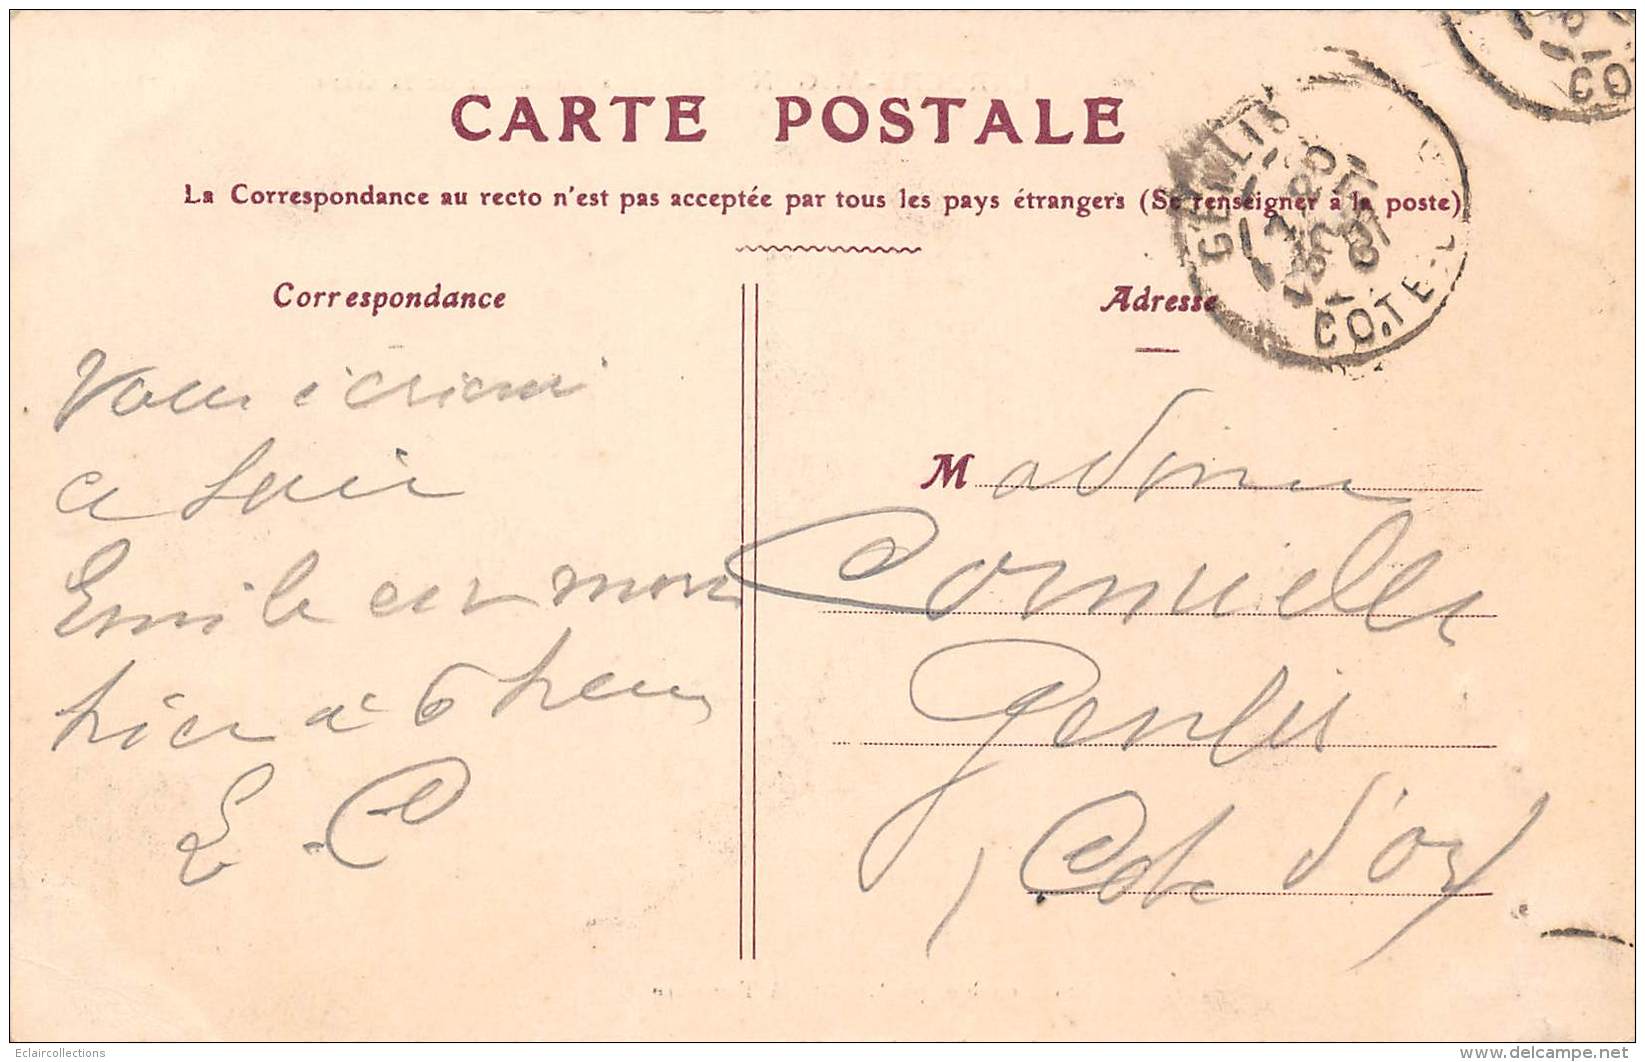 CARTE POSTALE
La Correspondance au recto n'est pas acceptée par tous les pays étrangers (Se renseigner à la poste)
Correspondance
Vous écrirai
ce soir
Emile est mort
hier à 6 heures
E. C
Adresse
Madame
Cornuelle
Genlis
Cote d'or
GENLIS
COTE-D
Eclaircollections
www.delcampe.net